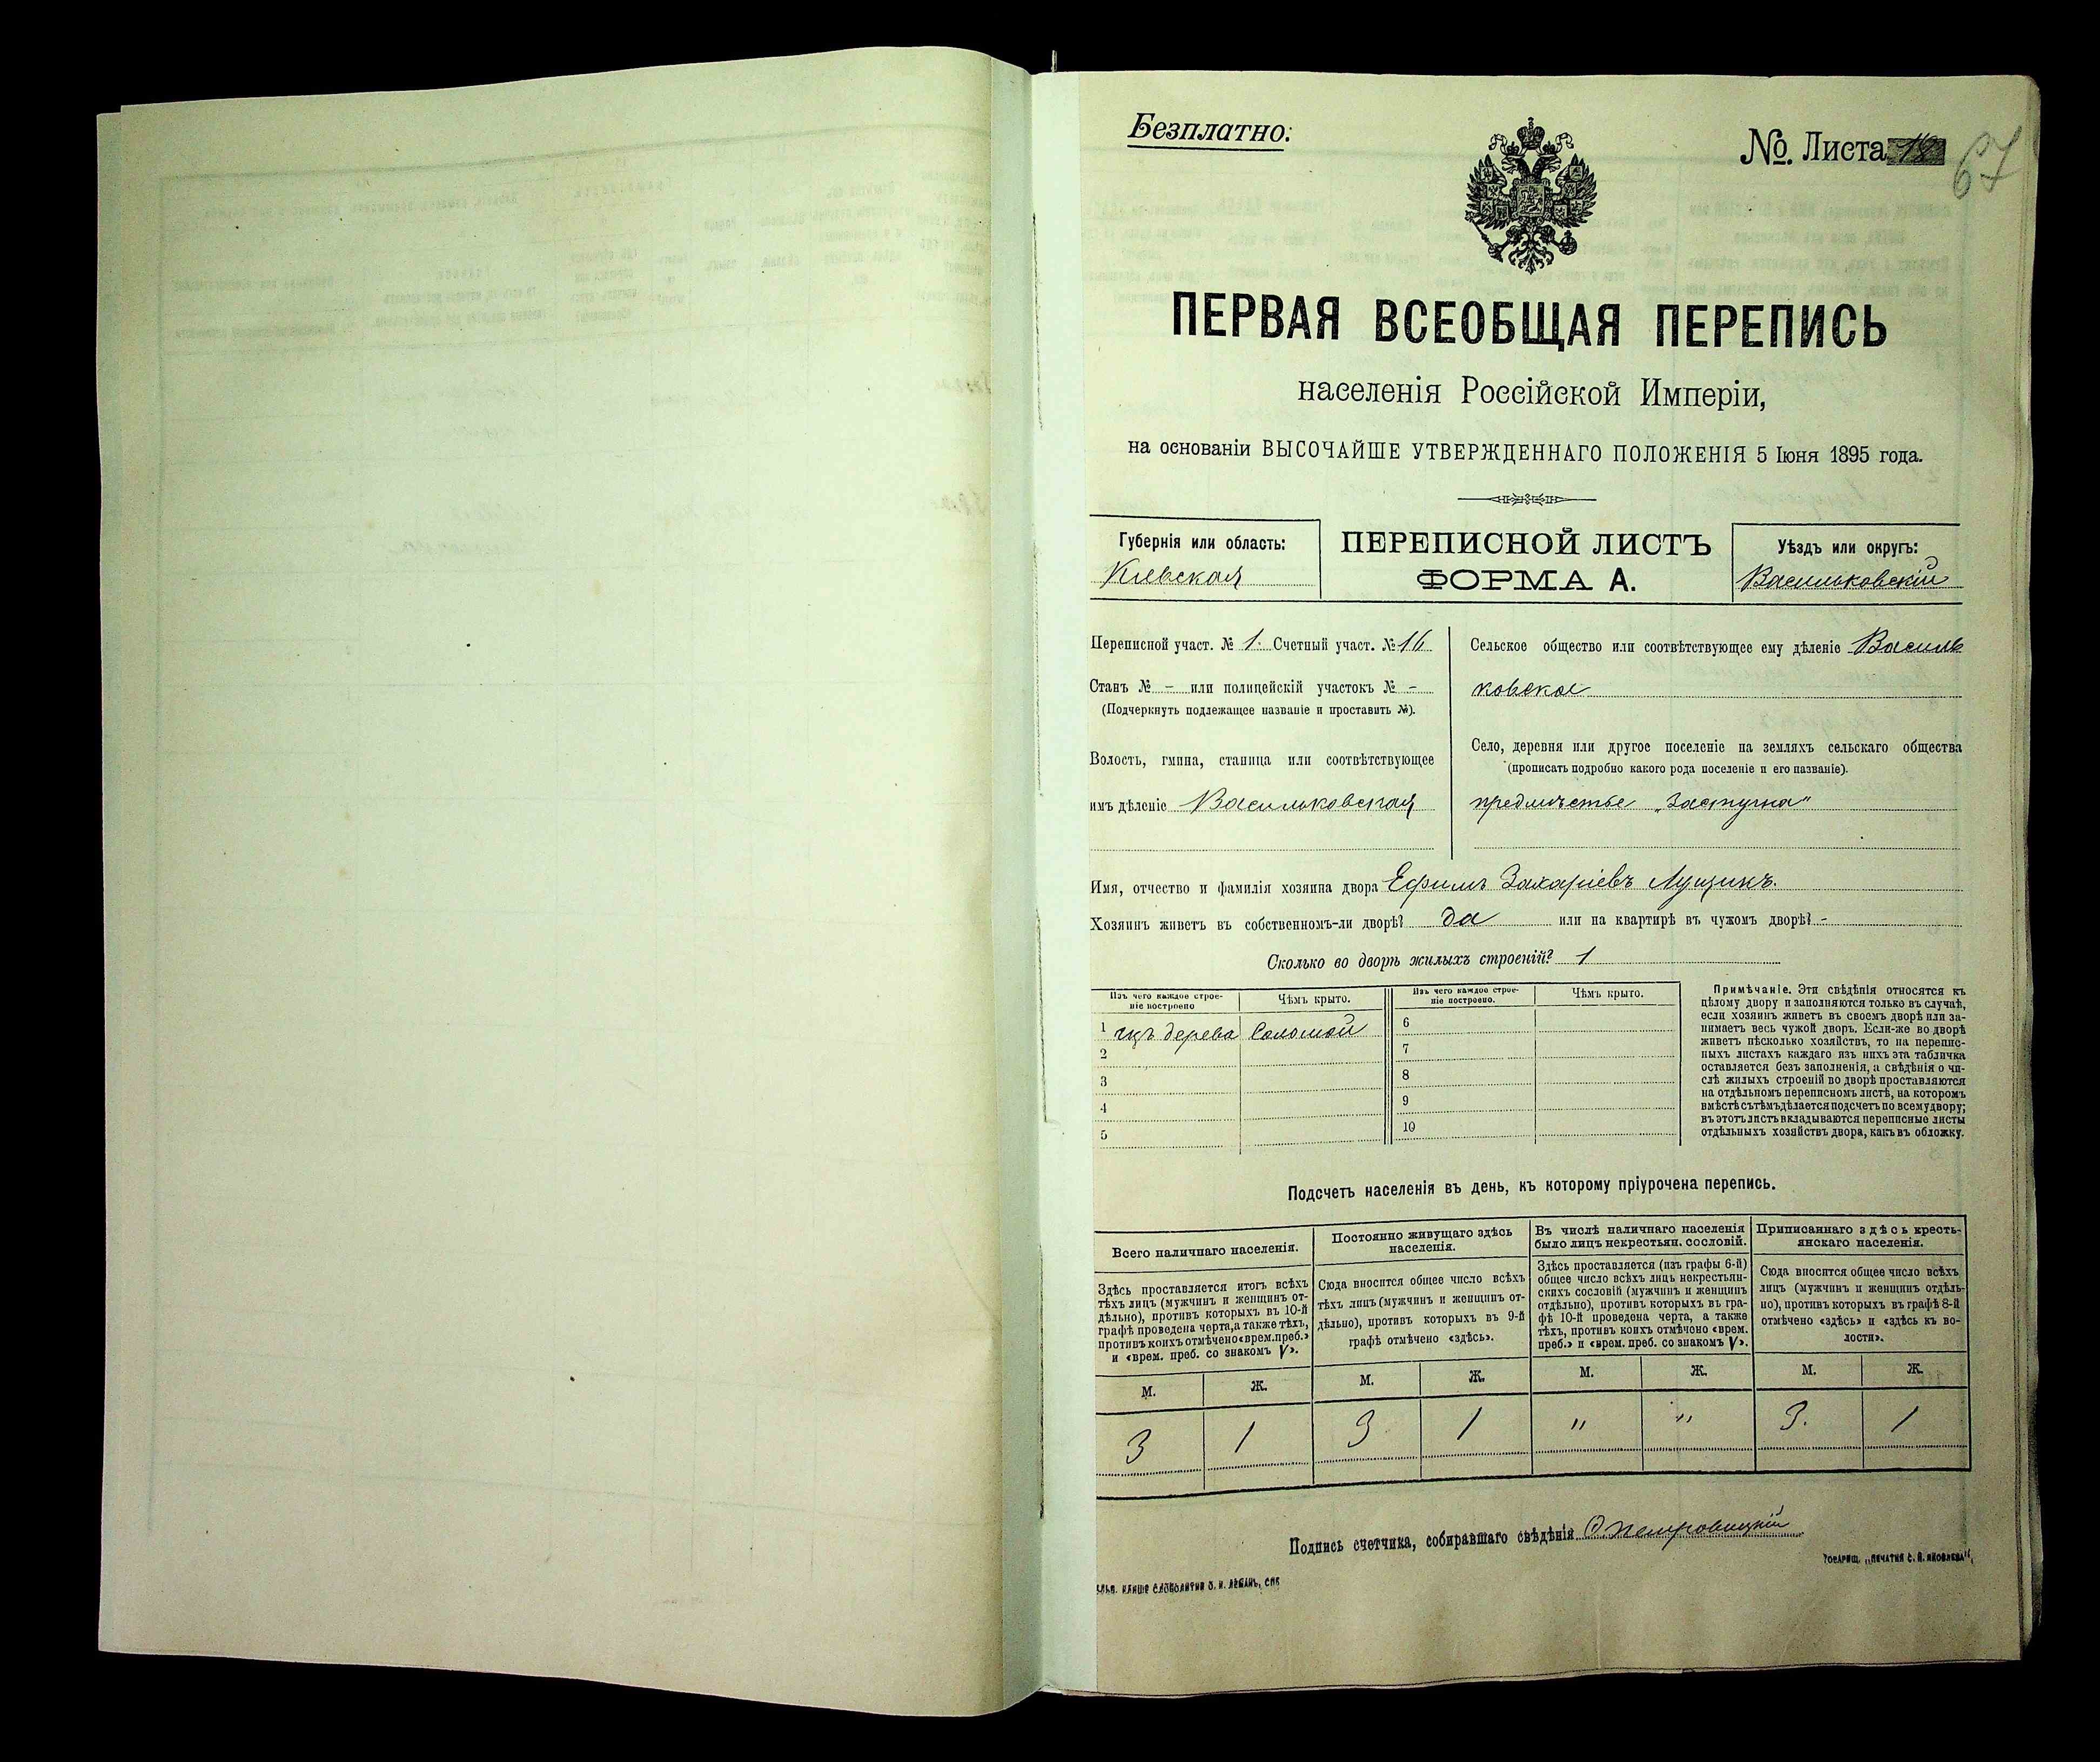 Безплатно:
№. Листа 18
67
ПЕРВАЯ ВСЕОБЩАЯ ПЕРЕПИСЬ
населенія Россійской Имперіи,
на основаніи ВЫСОЧАЙШЕ УТВЕРЖДЕННАГО ПОЛОЖЕНІЯ 5 Іюня 1895 года.
Губернія или область:
Кіевская
ПЕРЕПИСНОЙ ЛИСТЪ
ФОРМА А.
Уѣздъ или округъ:
Васильковскій
Переписной участ. № 1. Счетный участ. № 16
Станъ № - или полицейскій участокъ № -
(Подчеркнуть подлежащее названіе и проставить №).
Волость, гмина, станица или соотвѣтствующее
имъ дѣленіе Васильковская
Сельское общество или соотвѣтствующее ему дѣленіе Василь
ковское
Село, деревня или другое поселеніе на земляхъ сельскаго общества
(прописать подробно какого рода поселеніе и его названіе).
предмѣстье „Застугна"
Имя, отчество и фамилія хозяина двора Ефимъ Захаріевъ Лущикъ.
Хозяинъ живетъ въ собственномъ-ли дворѣ? да или на квартирѣ въ чужомъ дворѣ? -
Сколько во дворѣ жилыхъ строеній? 1
Изъ чего каждое строе-
ніе построено
Чѣмъ крыто.
Изъ чего каждое строе-
ніе построено.
Чѣмъ крыто.
1 изъ дерева Соломой
2
3
4
5
6
7
8
9
10
Примѣчаніе. Эти свѣдѣнія относятся къ
цѣлому двору и заполняются только въ случаѣ,
если хозяинъ живетъ въ своемъ дворѣ или за-
нимаетъ весь чужой дворъ. Если-же во дворѣ
живетъ нѣсколько хозяйствъ, то на перепис-
ныхъ листахъ каждаго изъ нихъ эта табличка
оставляется безъ заполненія, а свѣдѣнія о чи-
слѣ жилыхъ строеній во дворѣ проставляются
на отдѣльномъ переписномъ листѣ, на которомъ
вмѣстѣ съ тѣмъ дѣлается подсчетъ по всему двору;
въ этотъ листъ вкладываются переписные листы
отдѣльныхъ хозяйствъ двора, какъ въ обложку.
Подсчетъ населенія въ день, къ которому пріурочена перепись.
Всего наличнаго населенія.
Здѣсь проставляется итогъ всѣхъ
тѣхъ лицъ (мужчинъ и женщинъ от-
дѣльно), противъ которыхъ въ 10-й
графѣ проведена черта, а также тѣхъ,
противъ коихъ отмѣчено «врем. преб.»
и «врем. преб. со знакомъ V».
Постоянно живущаго здѣсь
населенія.
Сюда вносится общее число всѣхъ
тѣхъ лицъ (мужчинъ и женщинъ от-
дѣльно), противъ которыхъ въ 9-й
графѣ отмѣчено «здѣсь».
Въ числѣ наличнаго населенія
было лицъ некрестьян. сословій.
Здѣсь проставляется (изъ графы 6-й)
общее число всѣхъ лицъ некрестьян-
скихъ сословій (мужчинъ и женщинъ
отдѣльно), противъ которыхъ въ гра-
фѣ 10-й проведена черта, а также
тѣхъ, противъ коихъ отмѣчено «врем.
преб.» и «врем. преб. со знакомъ V».
Приписаннаго здѣсь кресть-
янскаго населенія.
Сюда вносится общее число всѣхъ
лицъ (мужчинъ и женщинъ отдѣль-
но), противъ которыхъ въ графѣ 8-й
отмѣчено «здѣсь» и «здѣсь къ во-
лости».
М. Ж. М. Ж. М. Ж. М. Ж.
3 1 3 1 " " 3. 1
Подпись счетчика, собиравшаго свѣдѣнія
Товарищ. „Печатня С. П. Яковлева".